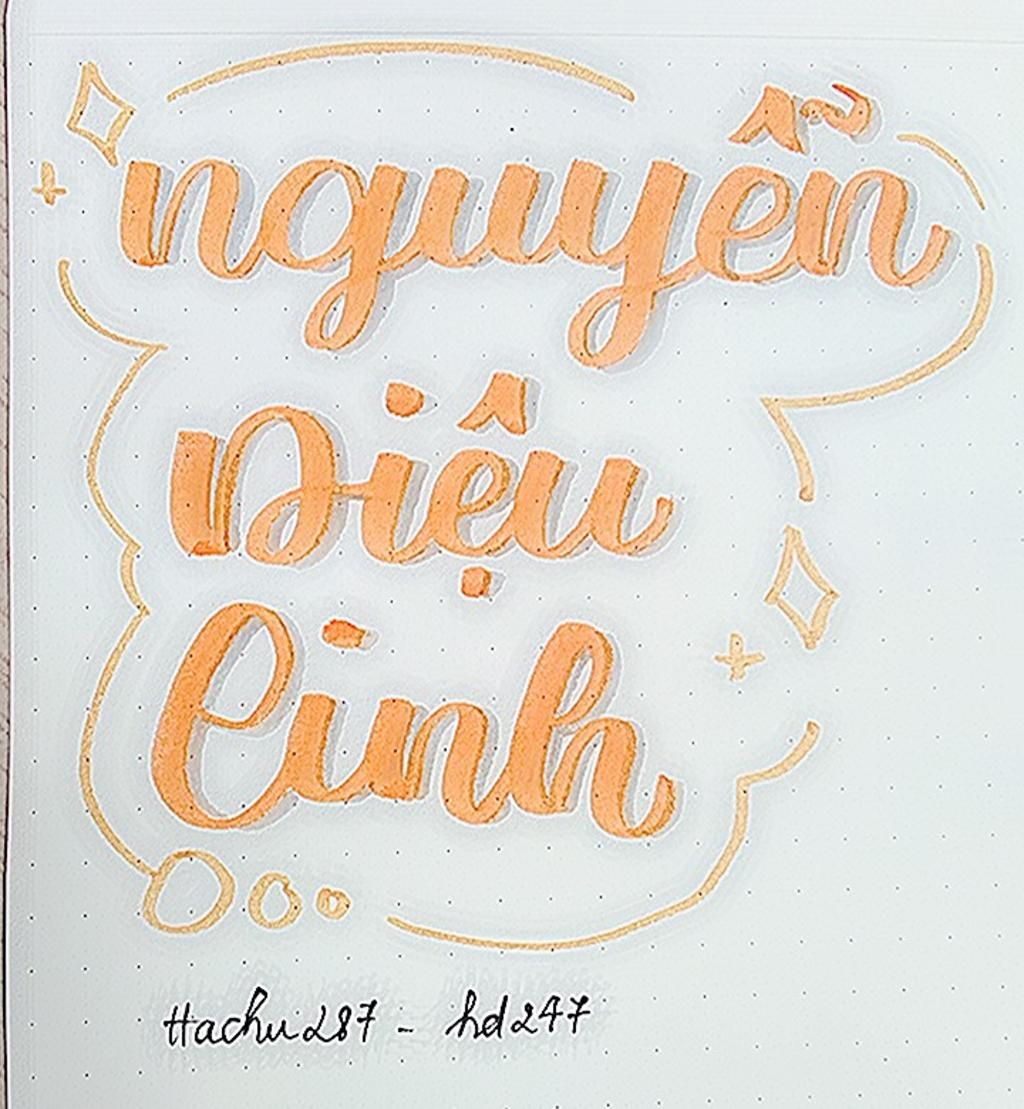 nguyễn
Diệu
Linh
Hachu287 - hd247